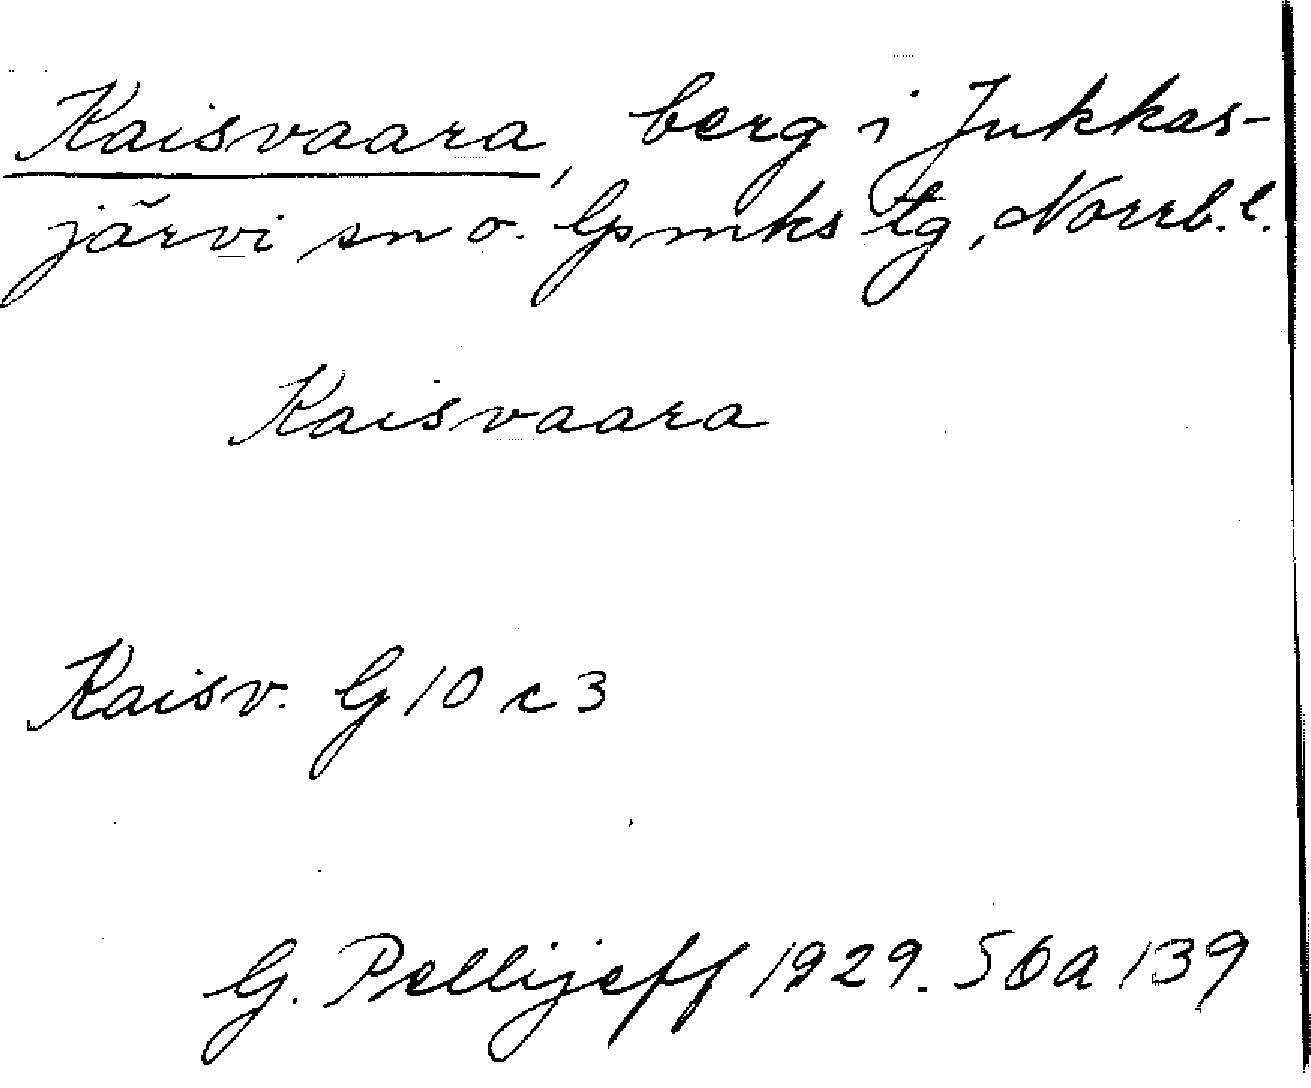 Kaisvaara, berg i Jukkas-
järvi sn o. lpmks tg, Norrb. l.
Kaisvaara
Kaisv. G 10 c 3
G. Pellijeff 1929. SOA 139